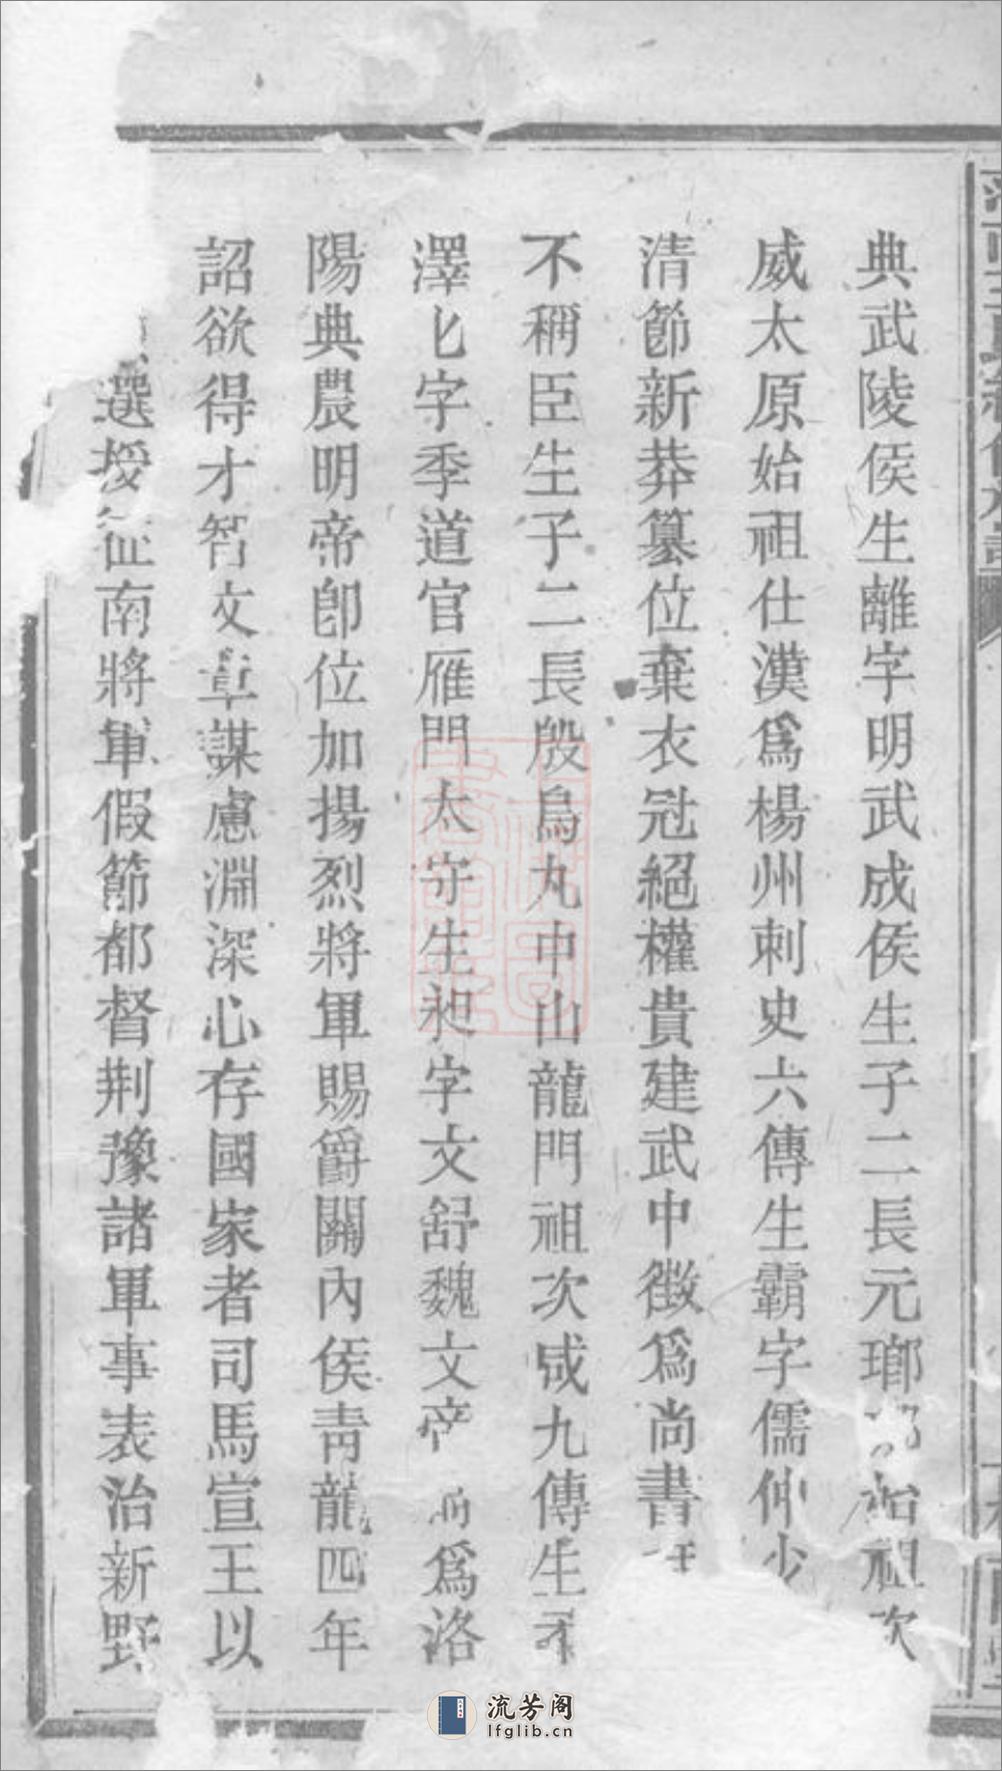 典武陵侯生離字明武成侯生子二長元瑯始祖次
威太原始祖仕漢爲楊州刺史六傳生霸字儒仲少
清節新莽篡位棄衣冠絕權貴建武中徵爲尚書
不稱臣生子二長殷烏丸中山龍門祖次咸九傳生
澤匕字季道官雁門太守生昶字文舒魏文帝爲洛
陽典農明帝卽位加揚烈將軍賜爵關內侯靑龍四年
詔欲得才智文章謀慮淵深心存國家者司馬宣王以
選授征南將軍假節都督荆豫諸軍事表治新野
流芳阁
lfglib.cn